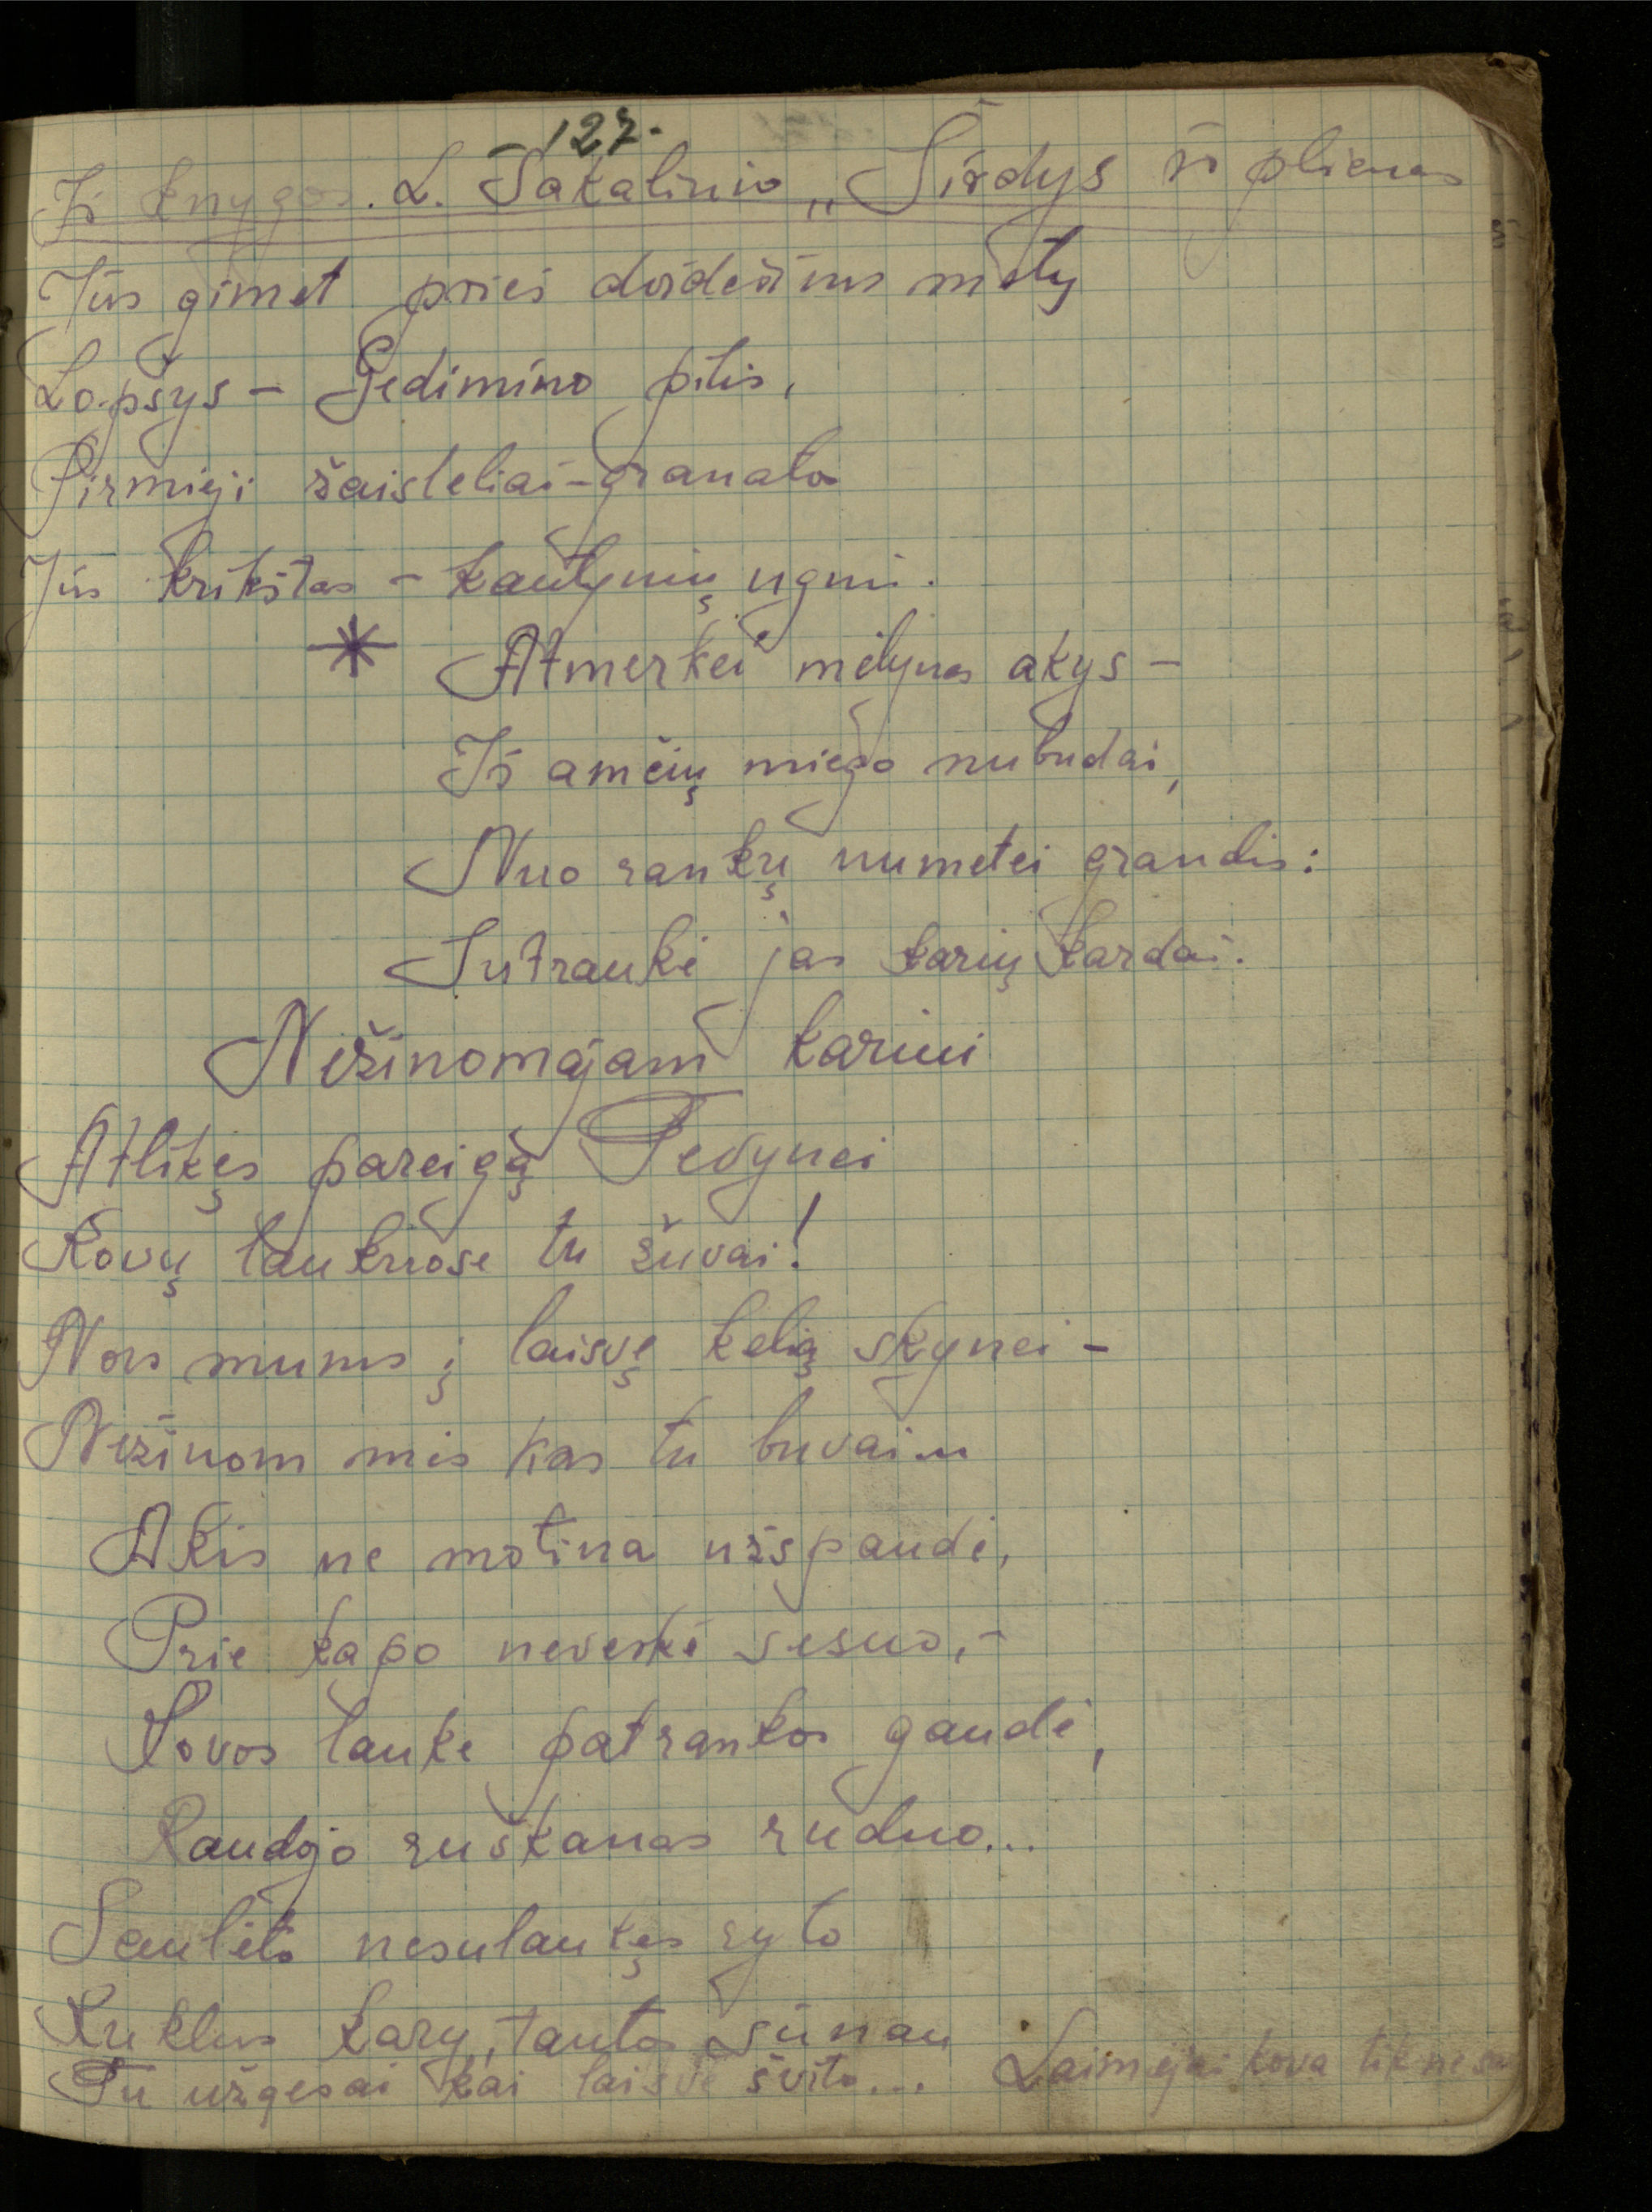 127.
Iš knygos. L. Šakalinio „Širdys iš plieno
Jūs gimėt prieš dvidešims metų
Lopšys - Gedimino pilis,
Pirmieji žaisleliai - granatos
Jūs krikštas - kautynių ugnis.
* Atmerkei mėlynas akys -
Iš amžių miego nubudai,
Nuo rankų numetei grandis:
Sutraukė jas karių kardai.
Nežinomajam kariui
Atlikęs pareigą Tėvynei
Kovų laukuose tu žuvai!
Nors mums į laisvę kelią skynei -
Nežinom mes kas tu buvai...
Akis ne motina užspaudė,
Prie kapo neverkė sesuo, -
Kovos lauke patrankos gaudė,
Raudojo ruškanas ruduo...
Saulėto nesulaukęs ryto
Kuklus kary, tautos sūnau
Tu užgesai kai laisvė švito... Laimėjai kova tik nesu